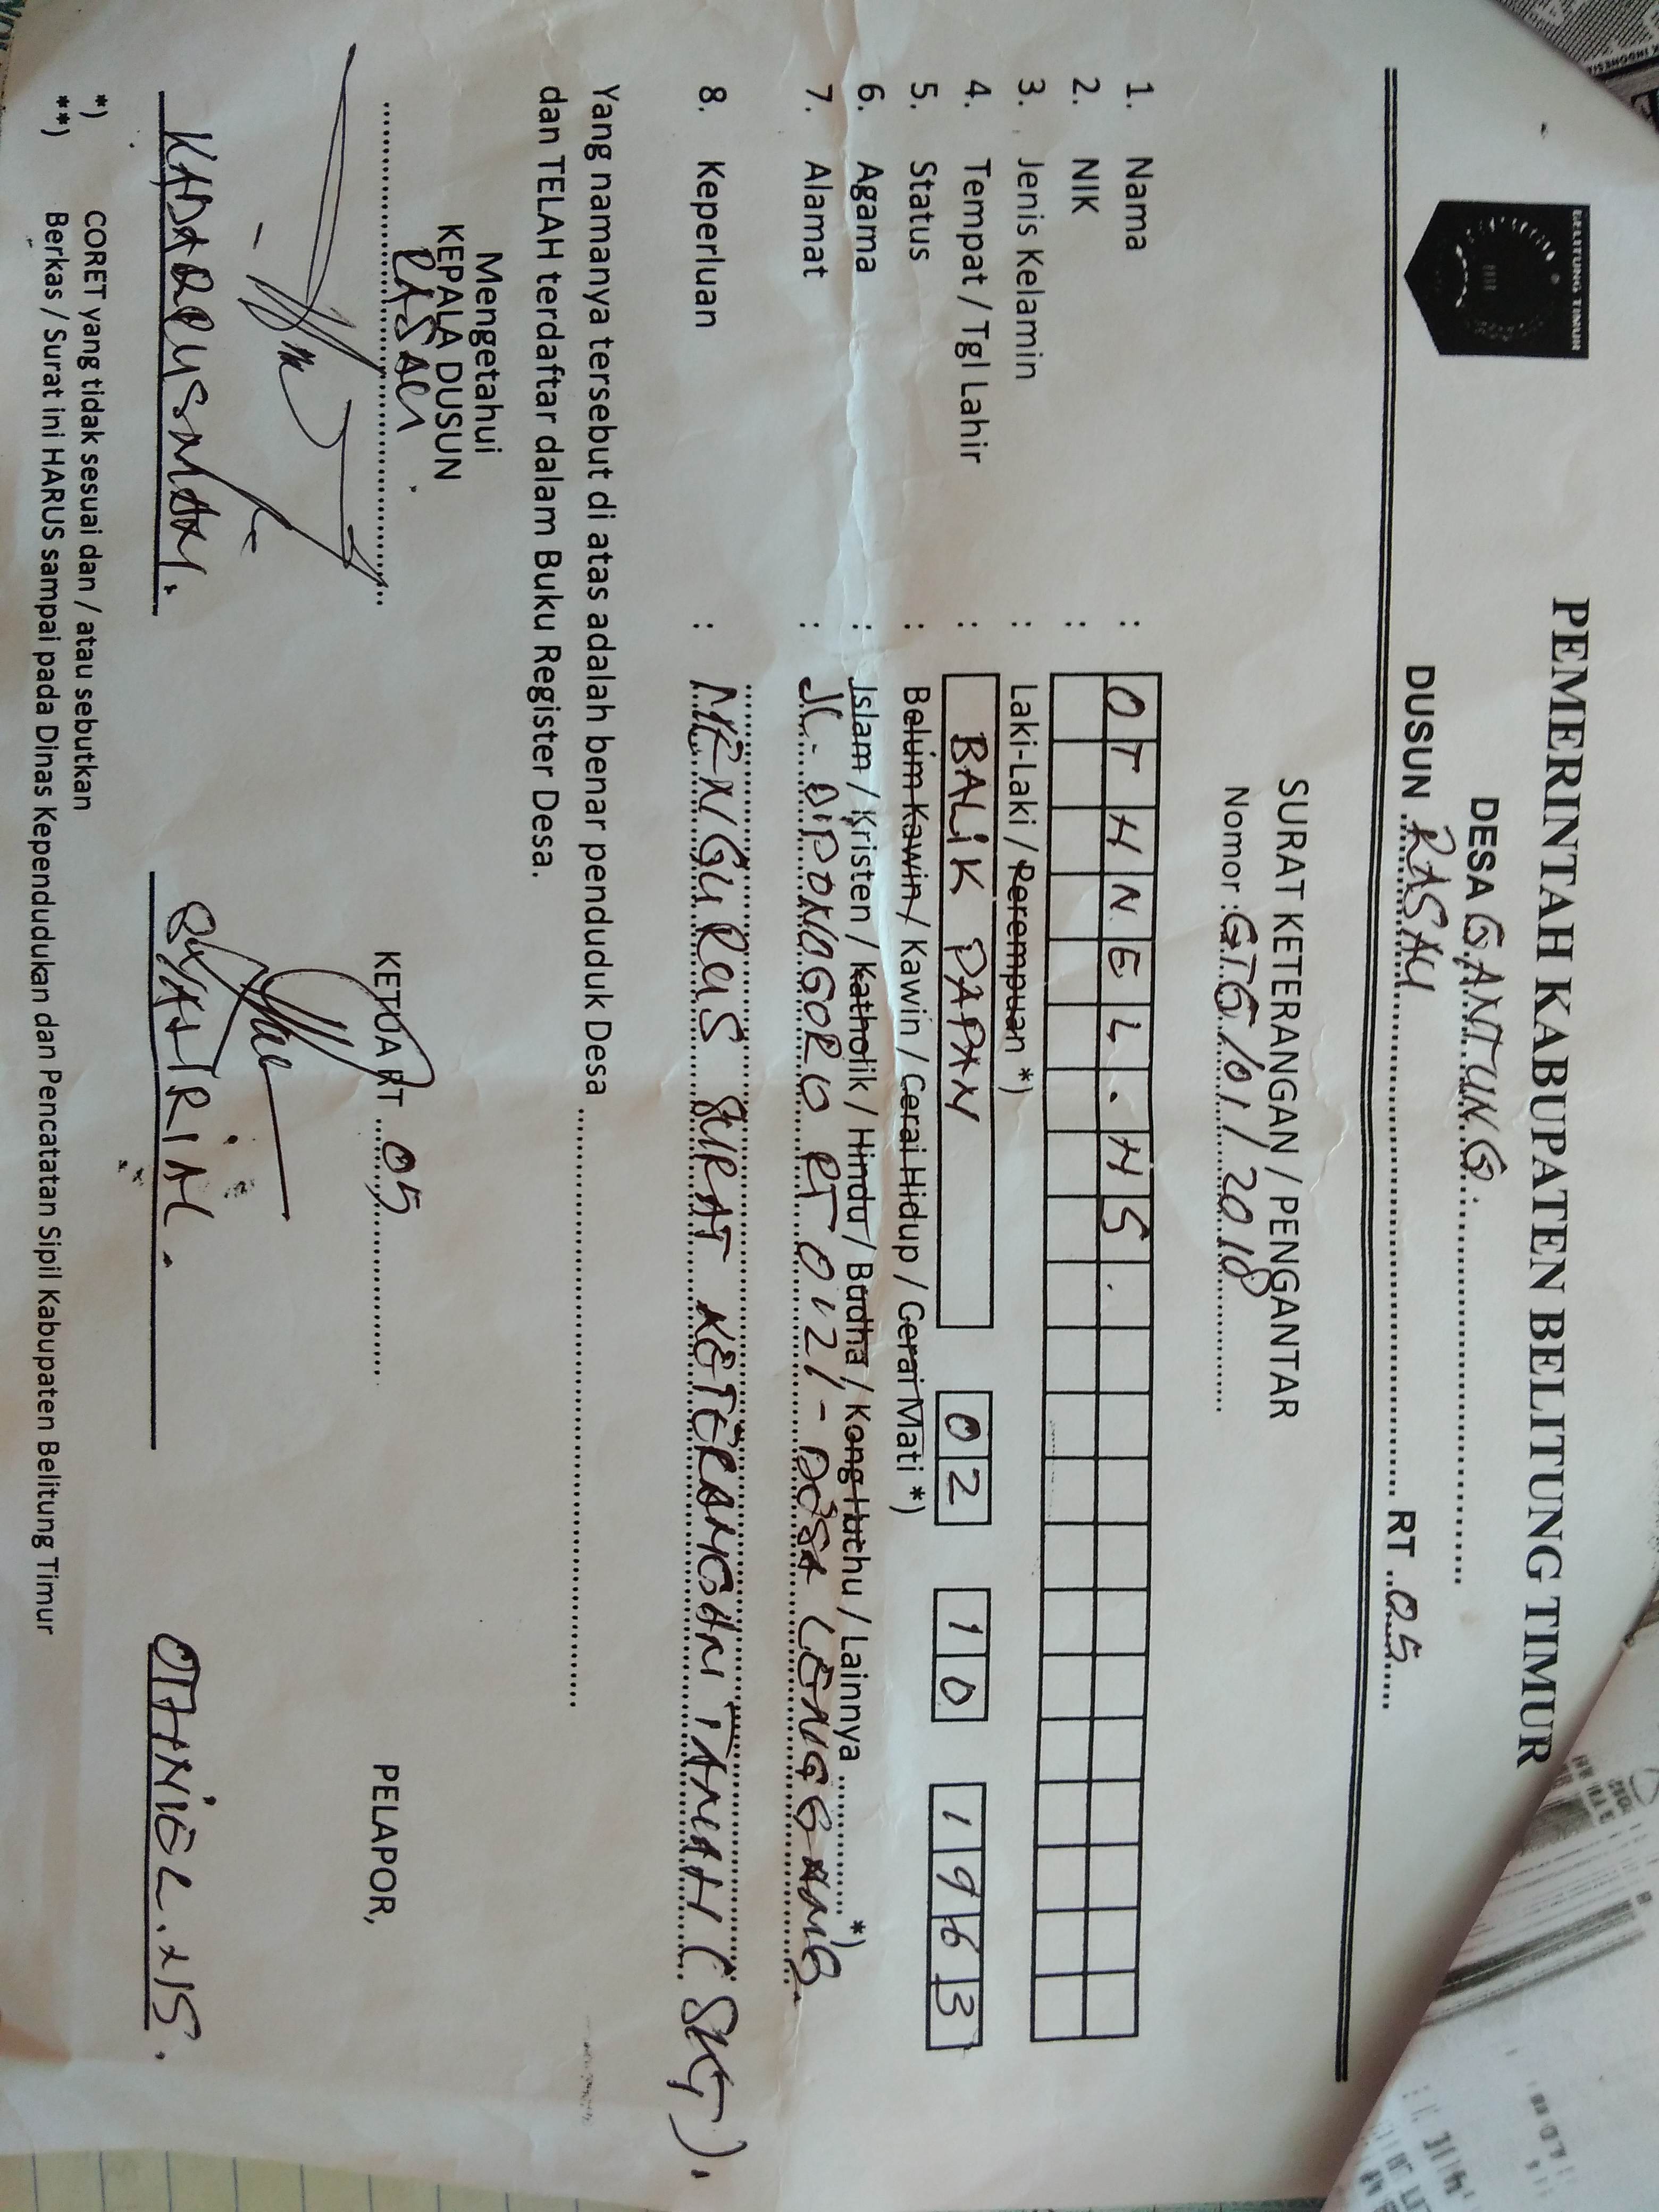 BELITUNG TIMUR
PEMERINTAH KABUPATEN BELITUNG TIMUR
DESA GANTUNG
DUSUN RASAU RT 05
SURAT KETERANGAN / PENGANTAR
Nomor : GTG/01/2018
1. Nama : OTHNEL.HS.
2. NIK :
3. Jenis Kelamin : Laki-Laki / Perempuan *)
4. Tempat / Tgl Lahir : BALIK PAPAN 02 10 1963
5. Status : Belum Kawin / Kawin / Cerai Hidup / Cerai Mati *)
6. Agama : Islam / Kristen / Katholik / Hindu / Budha / Kong Huchu / Lainnya *)
7. Alamat : JL. DIPONOGORO RT 01/21 - DESA LENGGANG.
8. Keperluan : MENGURUS SURAT KETERANGAN TANAH (SKT).
Yang namanya tersebut di atas adalah benar penduduk Desa
dan TELAH terdaftar dalam Buku Register Desa.
Mengetahui
KEPALA DUSUN KETUA RT 05 PELAPOR,
RASAU
SYATRIAL. OTHNIEL.HS.
*) CORET yang tidak sesuai dan / atau sebutkan
**) Berkas / Surat ini HARUS sampai pada Dinas Kependudukan dan Pencatatan Sipil Kabupaten Belitung Timur